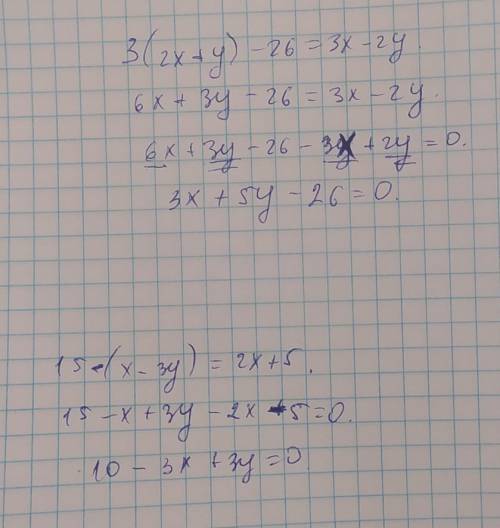 3(2x+y) - 26 = 3x - 2y.
6x + 3y - 26 = 3x - 2y.
6x + 3y - 26 - 3x + 2y = 0.
3x + 5y - 26 = 0.
15 - (x - 3y) = 2x + 5.
15 - x + 3y - 2x - 5 = 0.
10 - 3x + 3y = 0